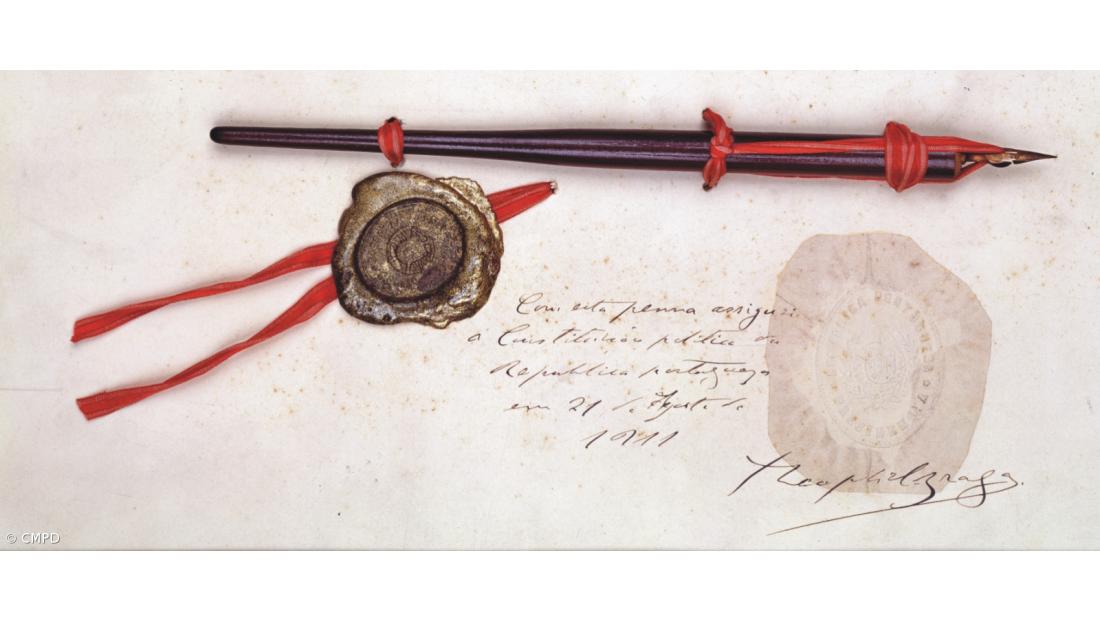 Com esta penna assignei
a Constituição politica da
Republica portugueza
em 21 de Agosto de
1911
Theophilo Braga.
© CMPD